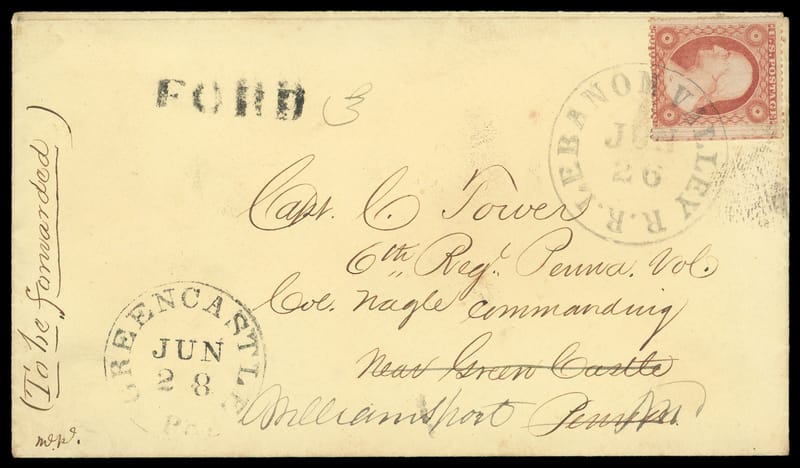 U.S. POSTAGE
FORD 3
LEBANON VALLEY R.R.
JUN
26
(To be forwarded)
Capt. C. Tower
6th Regt. Penna. Vol.
Col. Nagle commanding
Near Green Castle
Williamsport
GREENCASTLE
JUN
28
Pa.